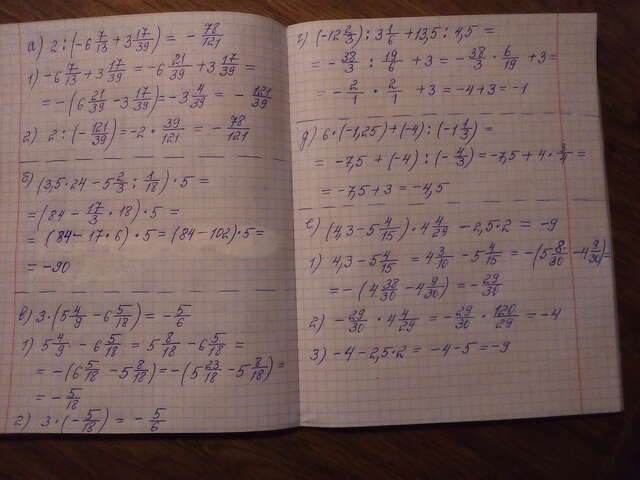 а) 2 : (-6 7/13 + 3 17/39) = - 78/121
1) -6 7/13 + 3 17/39 = -6 21/39 + 3 17/39 =
= -(6 21/39 - 3 17/39) = -3 4/39 = - 121/39
2) 2 : (- 121/39) = -2 · 39/121 = - 78/121
б) (3,5·24 - 5 2/3 : 1/18) · 5 =
= (84 - 17/3 · 18) · 5 =
= (84 - 17·6) · 5 = (84 - 102)·5 =
= -90
в) 3·(5 4/9 - 6 5/18) = - 5/6
1) 5 4/9 - 6 5/18 = 5 8/18 - 6 5/18 =
= -(6 5/18 - 5 8/18) = -(5 23/18 - 5 8/18) =
= - 5/18
2) 3·(- 5/18) = - 5/6
г) (-12 2/3) : 3 1/6 + 13,5 : 4,5 =
= - 38/3 : 19/6 + 3 = - 38/3 · 6/19 + 3 =
= - 2/1 · 2/1 + 3 = -4+3 = -1
д) 6·(-1,25) + (-4) : (-1 1/3) =
= -7,5 + (-4) : (- 4/3) = -7,5 + 4 · 3/4 =
= -7,5 + 3 = -4,5
е) (4,3 - 5 4/15) · 4 4/29 - 2,5·2 = -9
1) 4,3 - 5 4/15 = 4 3/10 - 5 4/15 = -(5 8/30 - 4 9/30) =
= -(4 38/30 - 4 9/30) = - 29/30
2) - 29/30 · 4 4/29 = - 29/30 · 120/29 = -4
3) -4 - 2,5·2 = -4-5 = -9